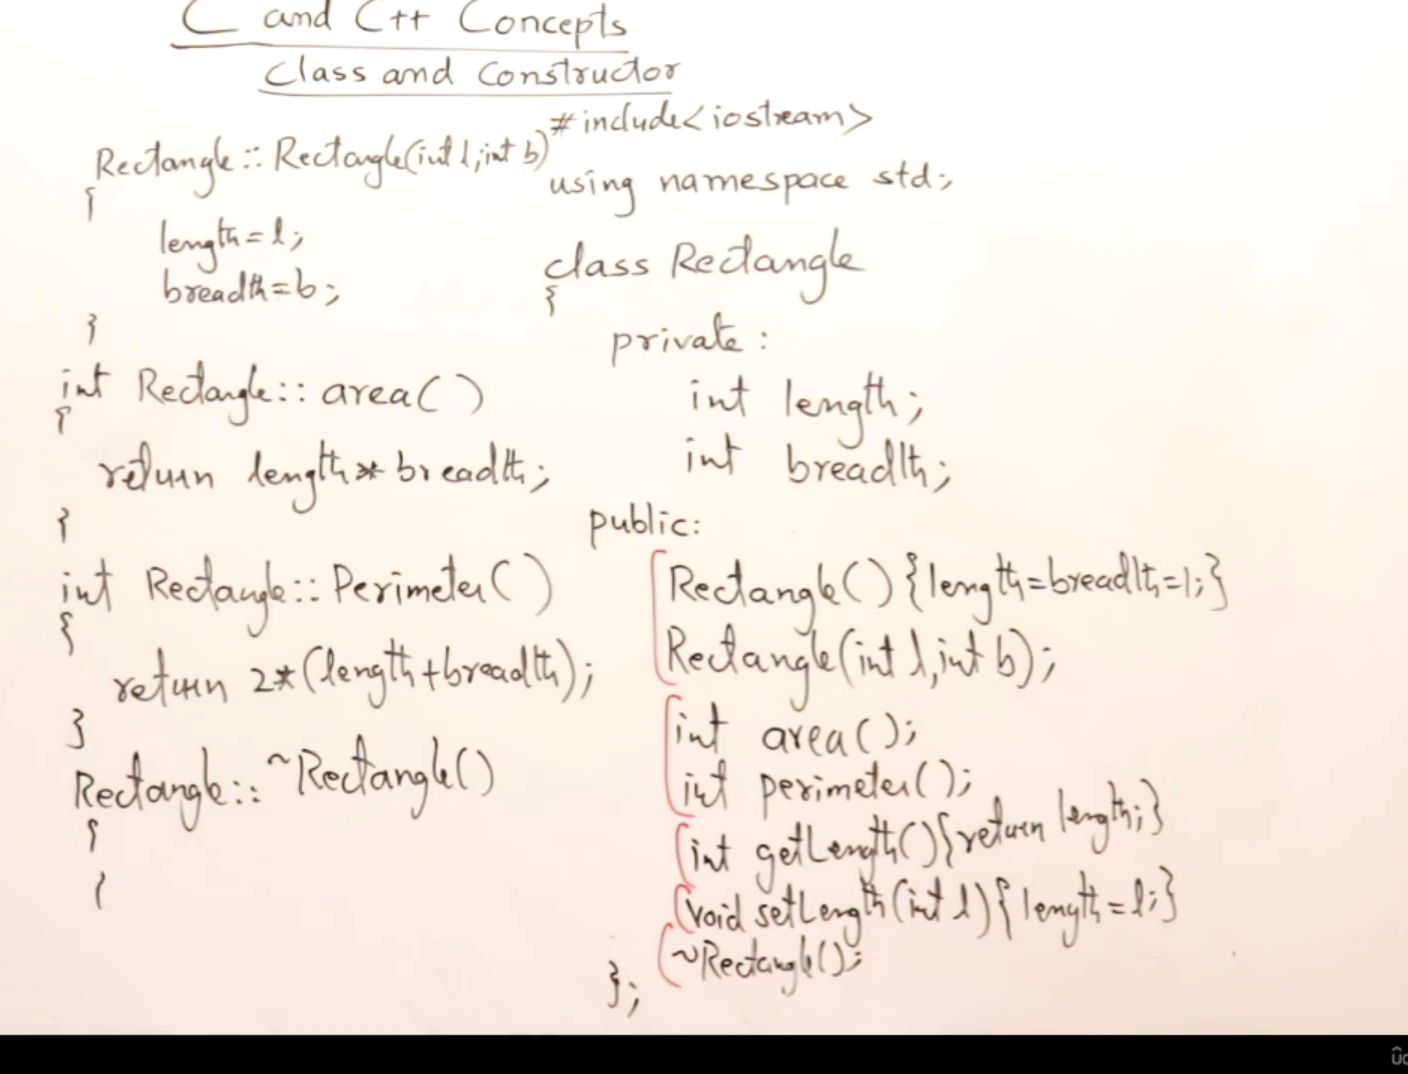 C and C++ Concepts
Class and Constructor
Rectangle :: Rectangle(int l, int b)
{
length = l;
breadth = b;
}
int Rectangle :: area()
{
return length * breadth;
}
int Rectangle :: Perimeter()
{
return 2*(length+breadth);
}
Rectangle :: ~Rectangle()
{
#include<iostream>
using namespace std;
class Rectangle
{
private :
int length;
int breadth;
public:
Rectangle() {length=breadth=1;}
Rectangle(int l, int b);
int area();
int perimeter();
int getLength(){return length;}
void setLength(int l){length=l;}
~Rectangle();
};